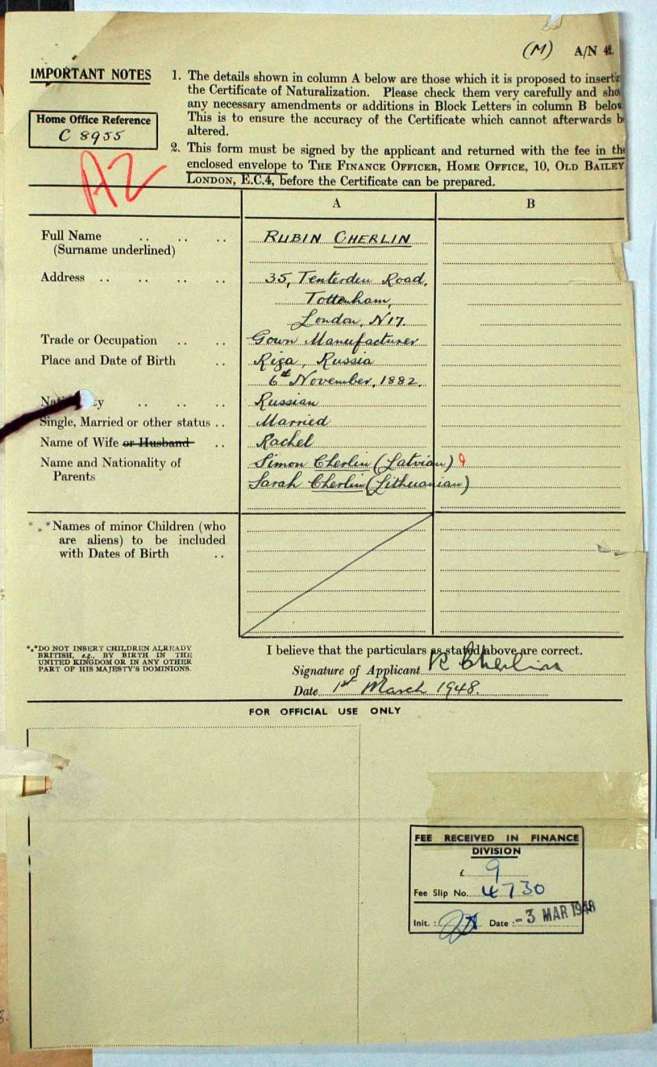 (M) A/N
IMPORTANT NOTES
1. The details shown in column A below are those which it is proposed to insert
the Certificate of Naturalization. Please check them very carefully and
any necessary amendments or additions in Block Letters in column B
This is to ensure the accuracy of the Certificate which cannot afterwards
altered.
Home Office Reference
C 8955
A2
2. This form must be signed by the applicant and returned with the fee in the
enclosed envelope to THE FINANCE OFFICER, HOME OFFICE, 10, OLD BAILEY
LONDON, E.C.4, before the Certificate can be prepared.
A B
Full Name .. .. .. RUBIN CHERLIN
(Surname underlined)
Address .. .. .. .. 35, Tenterden Road,
Tottenham,
London, N17.
Trade or Occupation .. .. Gown Manufacturer
Place and Date of Birth .. Riga, Russia
6th November, 1882.
.. .. .. Russian
Single, Married or other status .. Married
Name of Wife or Husband .. Rachel
Name and Nationality of Simon Cherlin (Latvian)
Parents Sarah Cherlin (Lithuanian)
*⁎*Names of minor Children (who
are aliens) to be included
with Dates of Birth ..
*⁎*DO NOT INSERT CHILDREN ALREADY
BRITISH, e.g., BY BIRTH IN THE
UNITED KINGDOM OR IN ANY OTHER
PART OF HIS MAJESTY'S DOMINIONS.
I believe that the particulars as stated above are correct.
Signature of Applicant R Cherlin
Date 1st March 1948.
FOR OFFICIAL USE ONLY
FEE RECEIVED IN FINANCE
DIVISION
£ 9
Fee Slip No. 4730
Init. : Date :- 3 MAR 1948